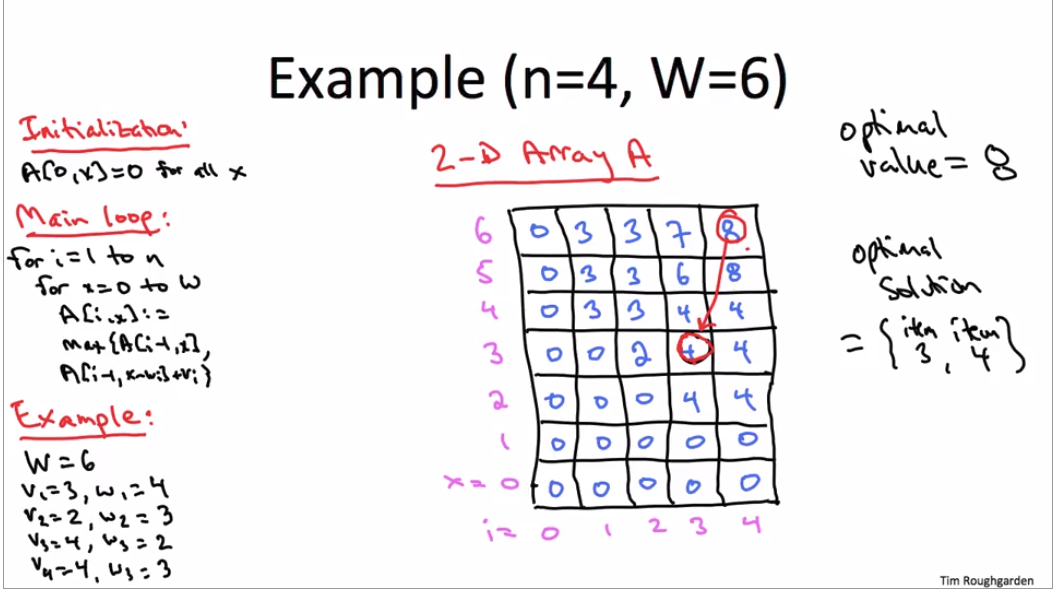 Example (n=4, W=6)
Initialization:
A[0,x]=0 for all x
Main loop:
for i=1 to n
for x=0 to W
A[i,x]:=
max{A[i-1,x],
A[i-1,x-wi]+vi}
Example:
W=6
v1=3, w1=4
v2=2, w2=3
v3=4, w3=2
v4=4, w3=3
2-D Array A
6 0 3 3 7 8
5 0 3 3 6 8
4 0 3 3 4 4
3 0 0 2 4 4
2 0 0 0 4 4
1 0 0 0 0 0
x= 0 0 0 0 0 0
i= 0 1 2 3 4
optimal
value = 8
optimal
solution
= {item 3, item 4}
Tim Roughgarden